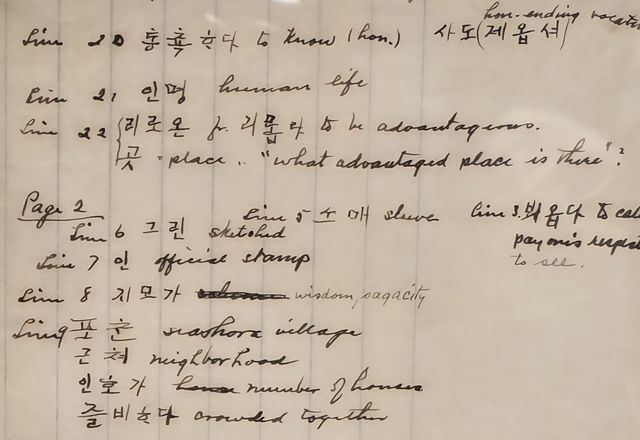 hon. ending
Line 20 통촉ᄒᆞ다 to know (hon.) 사도(제옵셔)
Line 21 인명 human life
Line 22 리로온 fr. 리롭다 to be advantageous.
곳 - place. "what advantaged place is there"?
Page 2
Line 5 소매 sleeve Line 3. 뵈옵다 to
Line 6 그린 sketched pay one's
to see.
Line 7 인 official stamp
Line 8 지모가 wisdom, sagacity
Line 9 포촌 seashore village
근쳐 neighborhood
인호가 number of houses
즐비ᄒᆞ다 crowded together